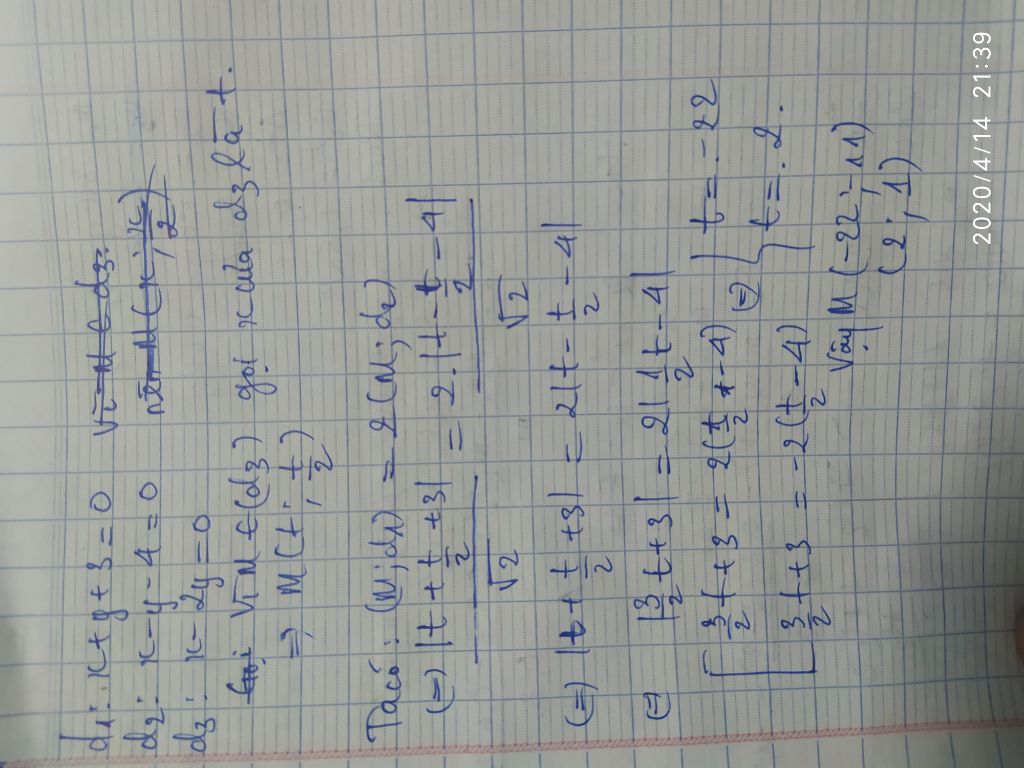 d1: x + y + 3 = 0 Vì M ∈ d3:
d2: x - y - 4 = 0 nên M (x; x/2)
d3: x - 2y = 0
Gọi Vì M ∈ (d3) gọi x của d3 là t.
=> M (t; t/2)
Ta có: (M; d1) = 2 (M; d2)
(=) |t + t/2 + 3| / √2 = 2. |t - t/2 - 4| / √2
(=) |t + t/2 + 3| = 2 |t - t/2 - 4|
(=) |3/2 t + 3| = 2 |1/2 t - 4|
[ 3/2 t + 3 = 2 (t/2 - 4) (=) [ t = -22
3/2 t + 3 = -2 (t/2 - 4) t = 2.
Vậy M (-22; -11)
(2; 1)
2020/4/14 21:39